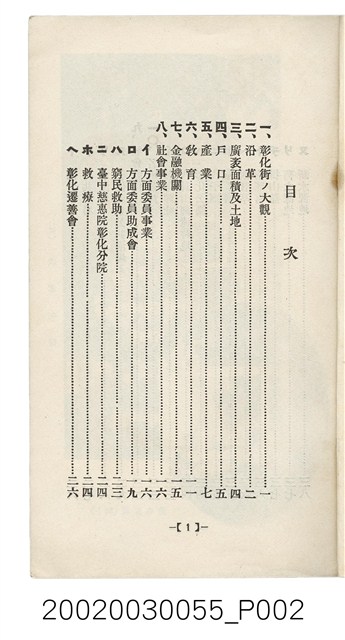 目次
一、彰化街ノ大觀…………一
二、沿革…………二
三、廣袤面積及土地…………四
四、戶口…………五
五、產業…………七
六、教育…………一一
七、金融機關…………一五
八、社會事業…………一六
イ 方面委員事業…………一六
ロ 方面委員助成會…………一九
ハ 窮民救助…………二三
ニ 臺中慈惠院彰化分院…………二四
ホ 救療…………二四
ヘ 彰化遷善會…………二六
—【1】—
20020030055_P002